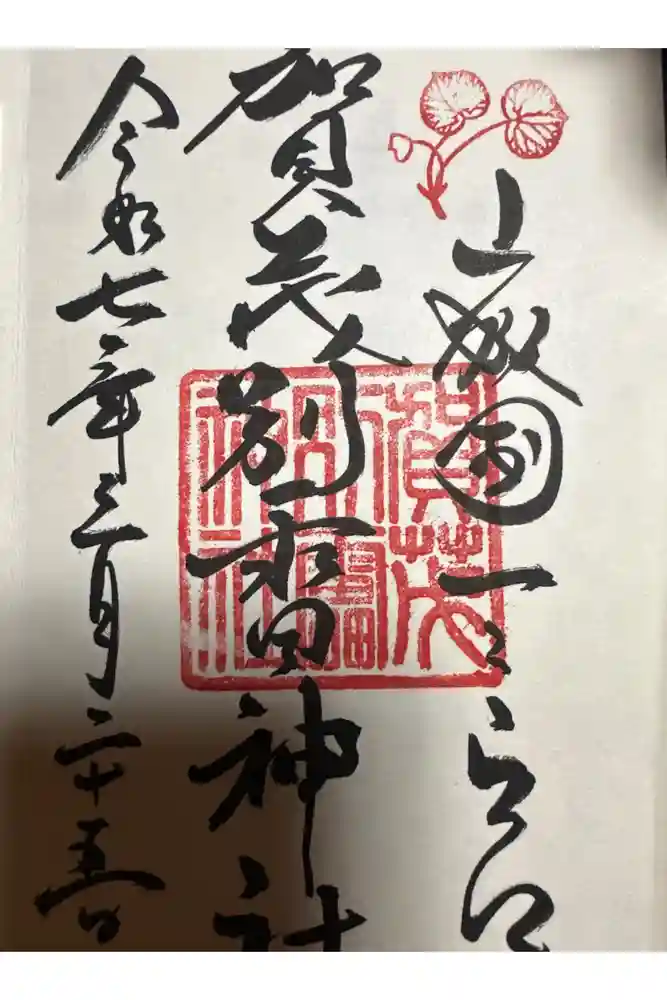 山城國一之宮
賀茂別雷神社
令和七年三月二十五日
賀茂別雷神社